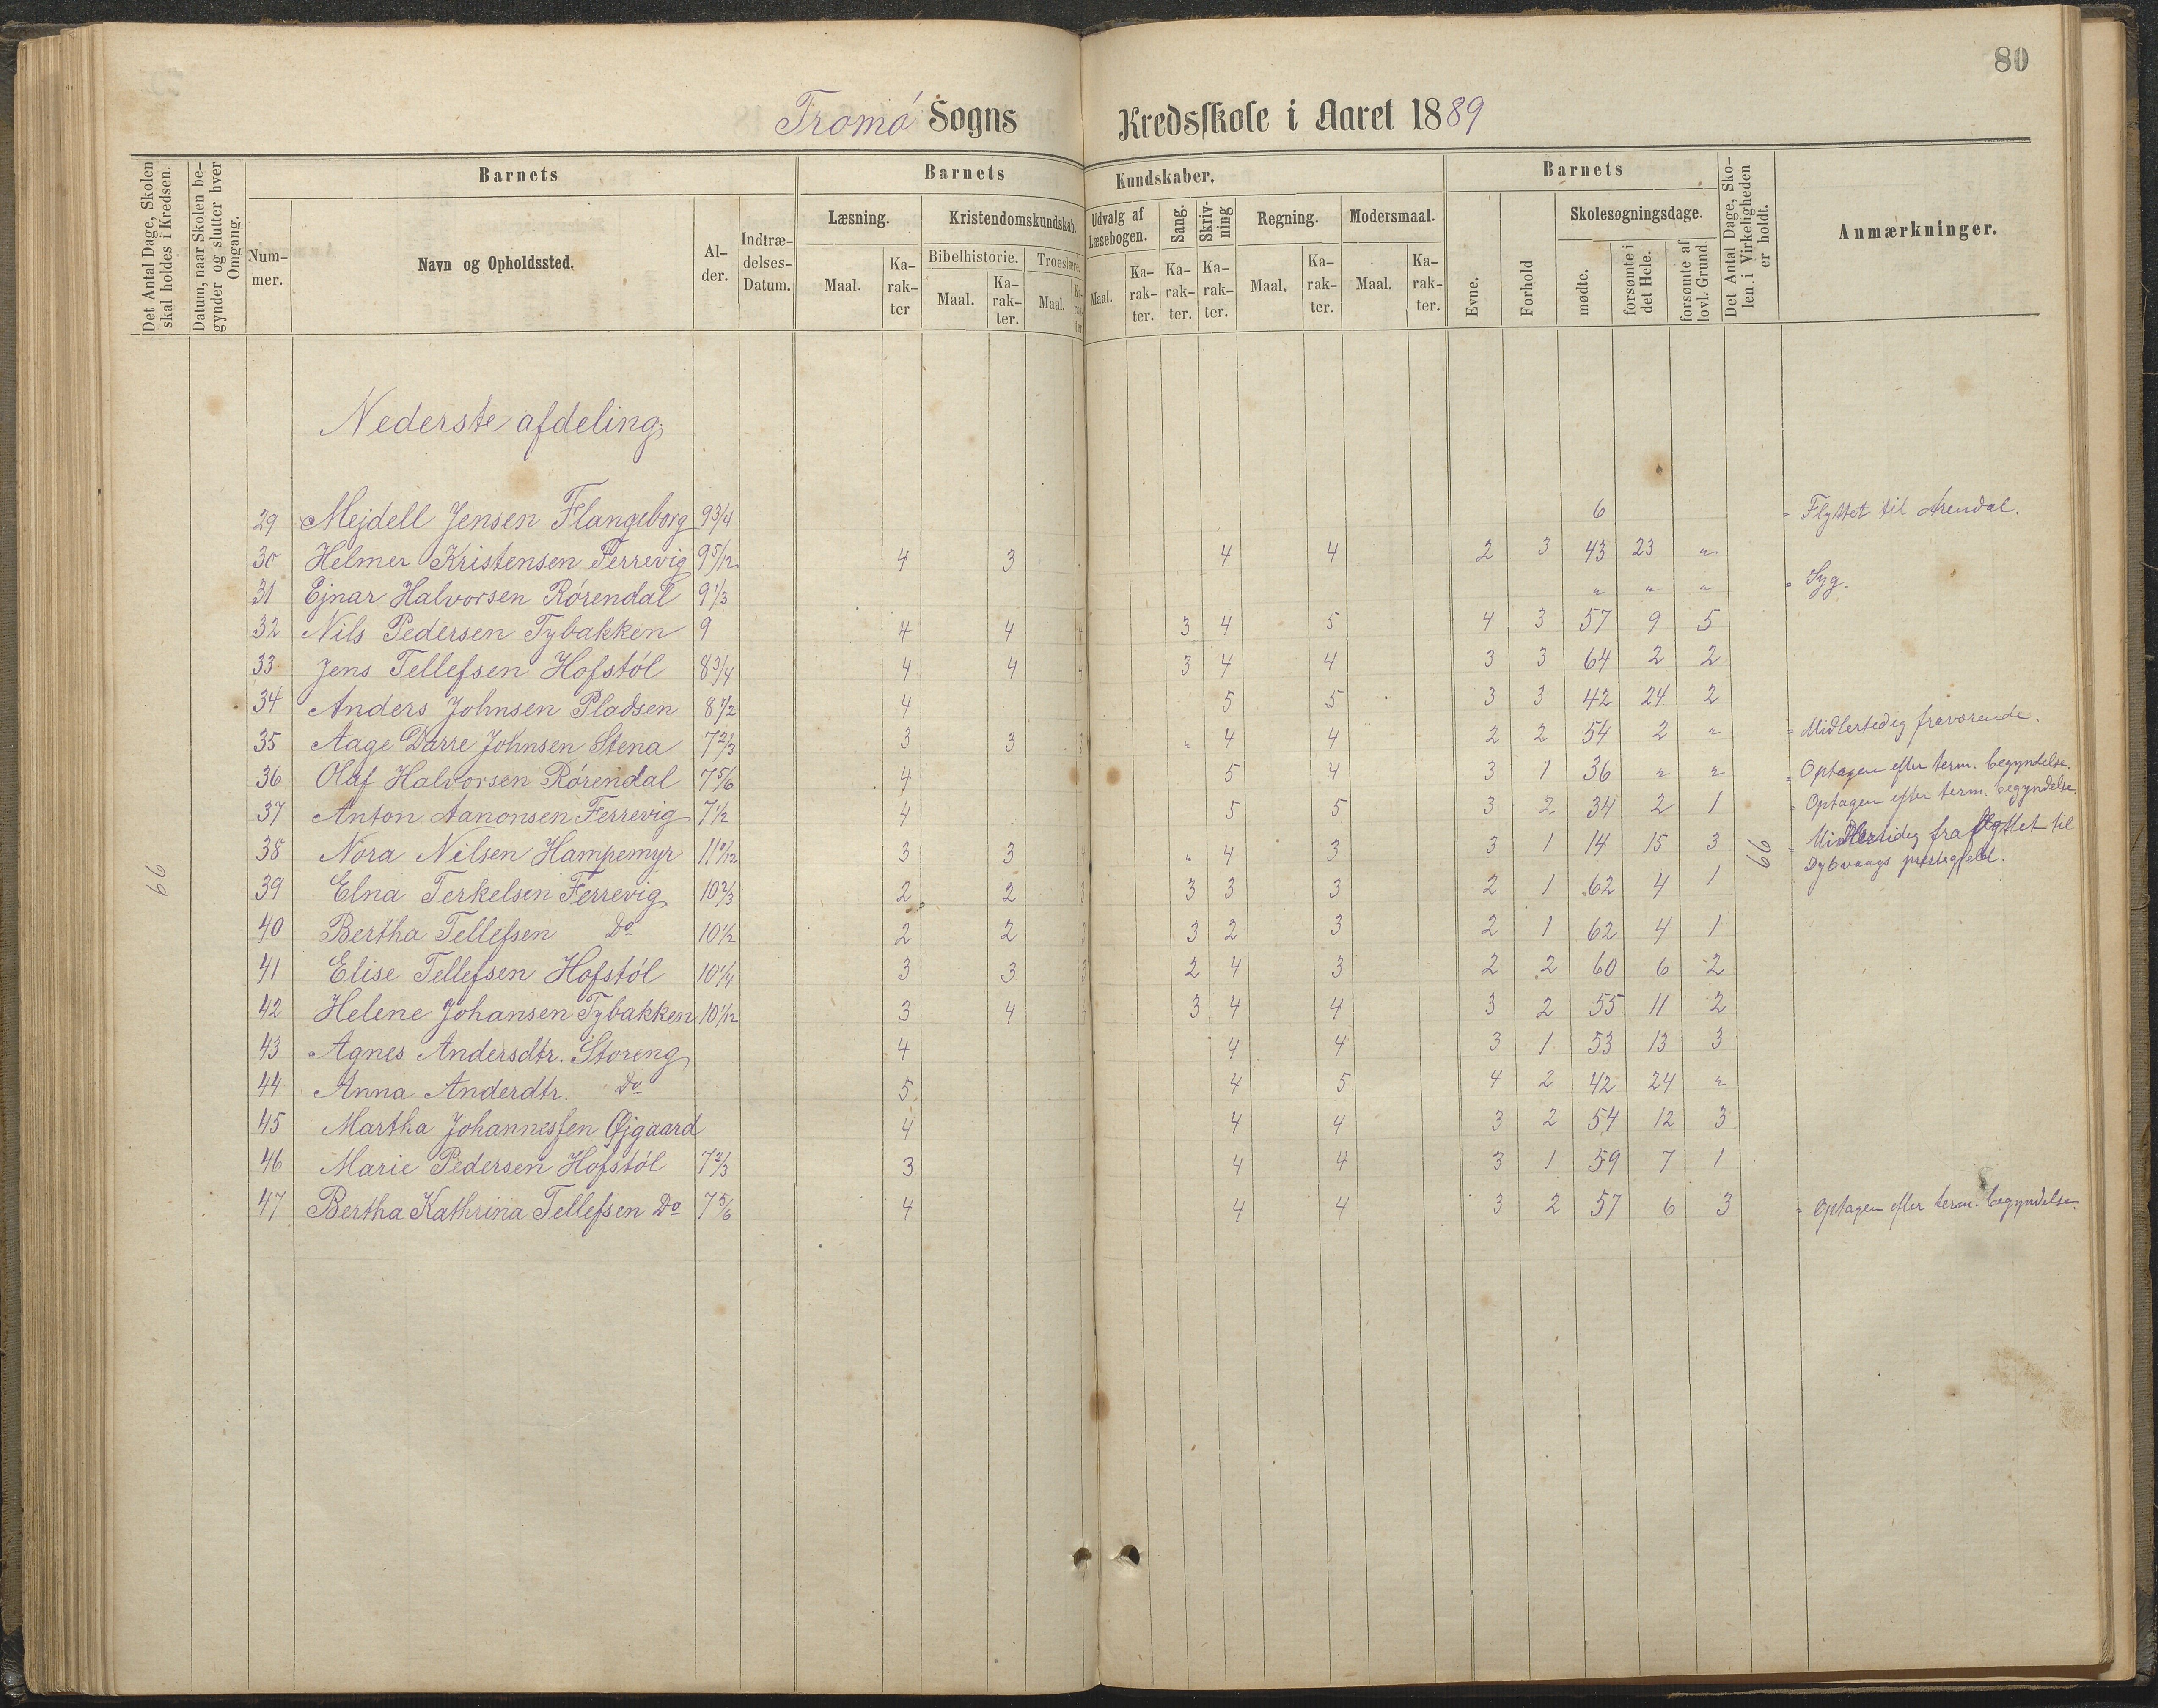 80
Tromø Sogns Kredsskole i Aaret 1889
Det Antal Dage, Skolen skal holdes i Kredsen.
Datum, naar Skolen begynder og slutter hver Omgang.
Barnets
Nummer.
Navn og Opholdssted.
Alder.
Indtrædelses-Datum.
Barnets Kundskaber.
Læsning. Maal. Karakter
Kristendomskundskab.
Bibelhistorie. Maal. Karakter.
Troeslære. Maal. Karakter
Udvalg af Læsebogen. Maal. Karakter.
Sang. Karakter.
Skrivning Karakter.
Regning. Maal. Karakter.
Modersmaal. Maal. Karakter.
Barnets
Evne.
Forhold
Skolesøgningsdage.
mødte.
forsømte i det Hele.
forsømte af lovl. Grund.
Det Antal Dage, Skolen i Virkeligheden er holdt.
Anmærkninger.
Nederste afdeling.
66
66
29 Mejdell Jensen Flangeborg 9 3/4 6 = Flyttet til Arendal.
30 Helmer Kristensen Ferrevig 9 5/12 4 3 4 4 2 3 43 23 "
31 Ejnar Halvorsen Rørendal 9 1/3 " " " = Syg.
32 Nils Pedersen Tybakken 9 4 4 4 3 4 5 4 3 57 9 5
33 Jens Tellefsen Hofstøl 8 3/4 4 4 4 3 4 4 3 3 64 2 2
34 Anders Johnsen Pladsen 8 1/2 4 5 5 3 3 42 24 2
35 Aage Darre Johnsen Stena 7 2/3 3 3 3 " 4 4 2 2 54 2 " = Midlertedig fraværende.
36 Olaf Halvorsen Rørendal 7 5/6 4 5 4 3 1 36 " " = Optagen efter term. begyndelse.
37 Anton Aanonsen Ferrevig 7 1/2 4 5 5 3 2 34 2 1 = Optagen efter term. begyndelse.
38 Nora Nilsen Hampemyr 3 3 " 4 3 3 1 14 15 3 = flyttet til
Dybvaags prestegjeld.
39 Elna Terkelsen Ferrevig 10 2/3 2 2 3 3 3 3 2 1 62 4 1
40 Bertha Tellefsen Do 10 1/2 2 2 3 3 2 3 2 1 62 4 1
41 Elise Tellefsen Hofstøl 10 1/4 3 3 3 2 4 3 2 2 60 6 2
42 Helene Johansen Tybakken 10 1/12 3 4 4 3 4 4 3 2 55 11 2
43 Agnes Andersdtr. Storeng 4 4 4 3 1 53 13 3
44 Anna Anderdtr. Do 5 4 5 4 2 42 24 "
45 Martha Johannesfen Øjgaard 4 4 4 3 2 54 12 3
46 Marie Pedersen Hofstøl 7 2/3 3 4 4 3 1 59 7 1
47 Bertha Kathrina Tellefsen Do 7 5/6 4 4 4 3 2 57 6 3 = Optagen efter term. begyndelse.